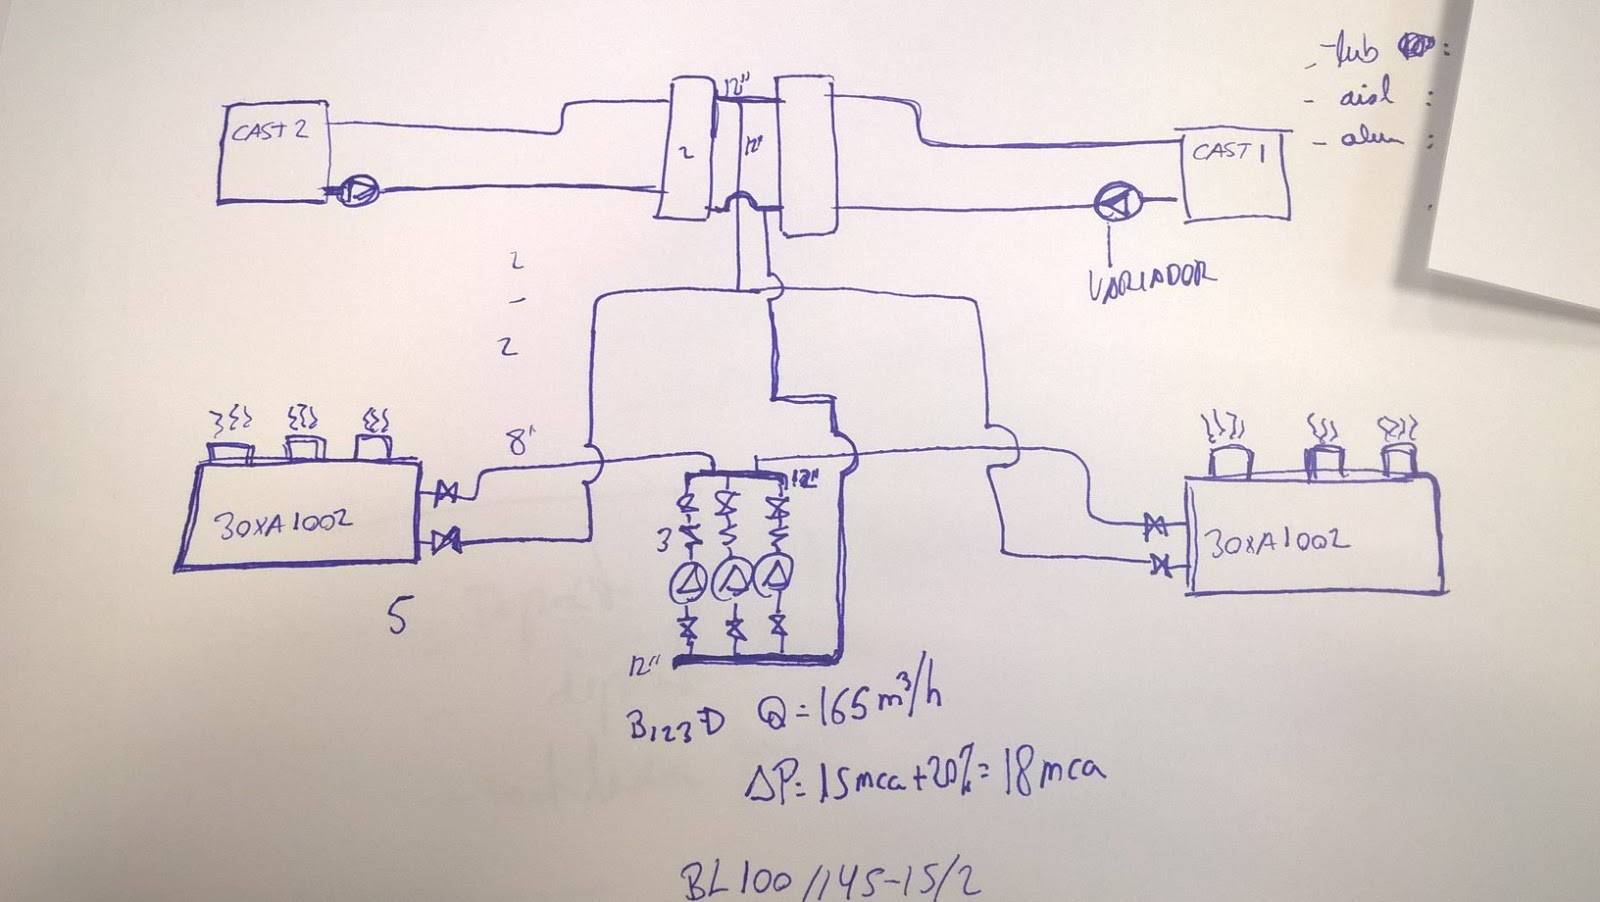 - tub :
- aisl :
- alum :
12"
CAST 2
2
12"
CAST 1
VARIADOR
2
-
2
8"
12"
30XA1002
3
30XA1002
5
12"
B123 D Q = 165 m³/h
ΔP = 15 mca + 20% = 18 mca
BL 100/145-15/2